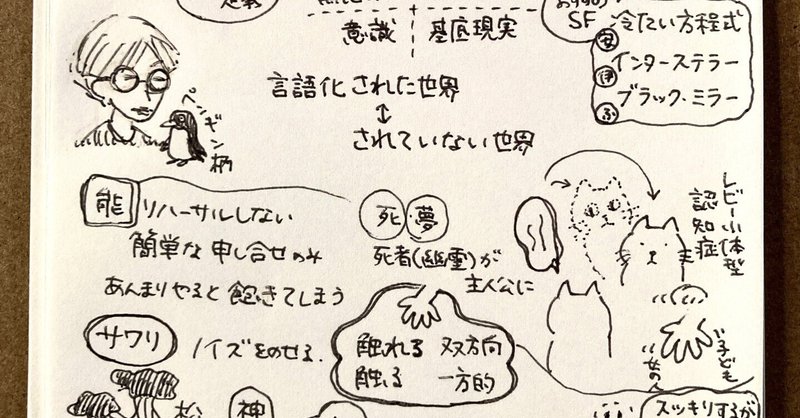 意識 基底現実
SF
冷たい方程式
インターステラー
ブラック・ミラー
言語化された世界
↕
されていない世界
ペンギン柄
能 リハーサルしない
簡単な申し合せのみ
あんまりやると飽きてしまう
死 夢
死者(幽霊)が
主人公に
レビー小体型
認知症
サワリ ノイズをのせる.
触れる 双方向
触る 一方的
子ども
女の人
スッキリするが
神